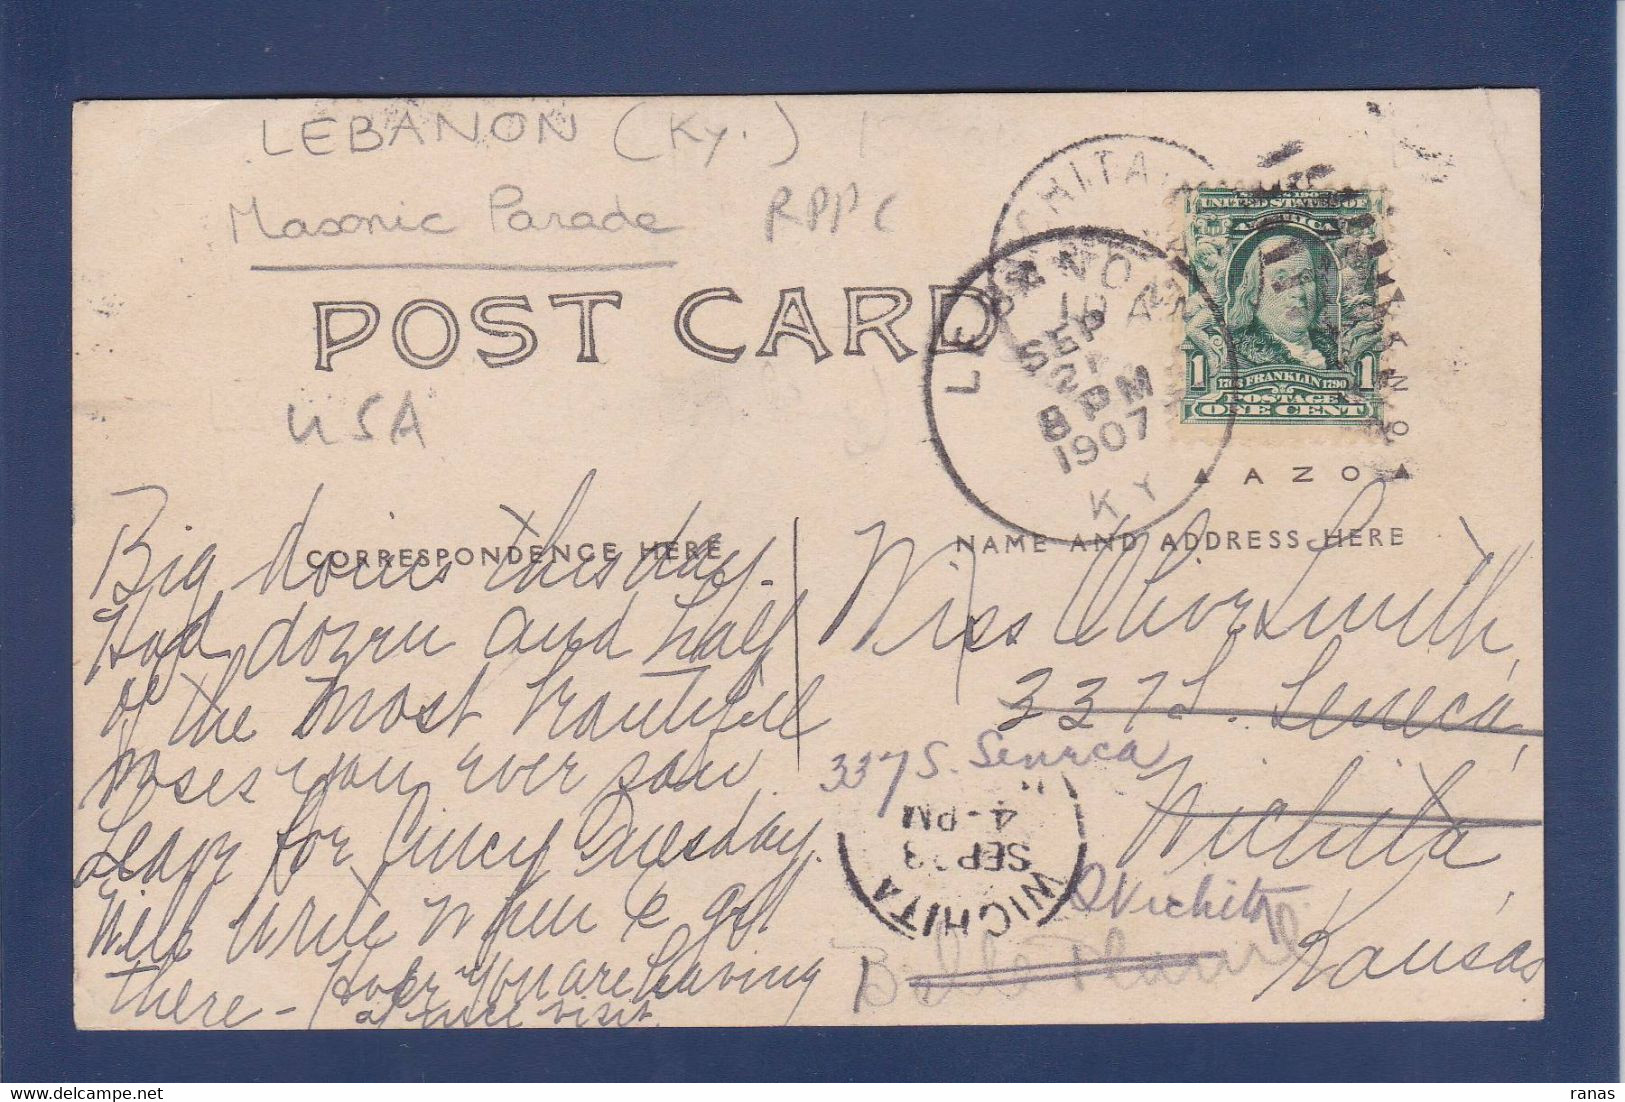 LEBANON (Ky.)
Masonic Parade RPPC
POST CARD
USA
WICHITA
LEBANON
SEP
8 PM
1907
KY
UNITED STATES OF
AMERICA
1 1706 FRANKLIN 1790 1
POSTAGE
ONE CENT
AZO
CORRESPONDENCE HERE
NAME AND ADDRESS HERE
Big doins this day-
Had dozen and half
of the most beautiful
roses you ever saw
Leave for Cincy Tuesday.
Will write when I get
there - Hope you are having
a nice visit.
Miss Olive Smith,
337 S. Seneca,
Wichita,
Kansas
337 S. Seneca
Wichita
Belle Plaine
WICHITA
SEP 23
4-PM
ranas